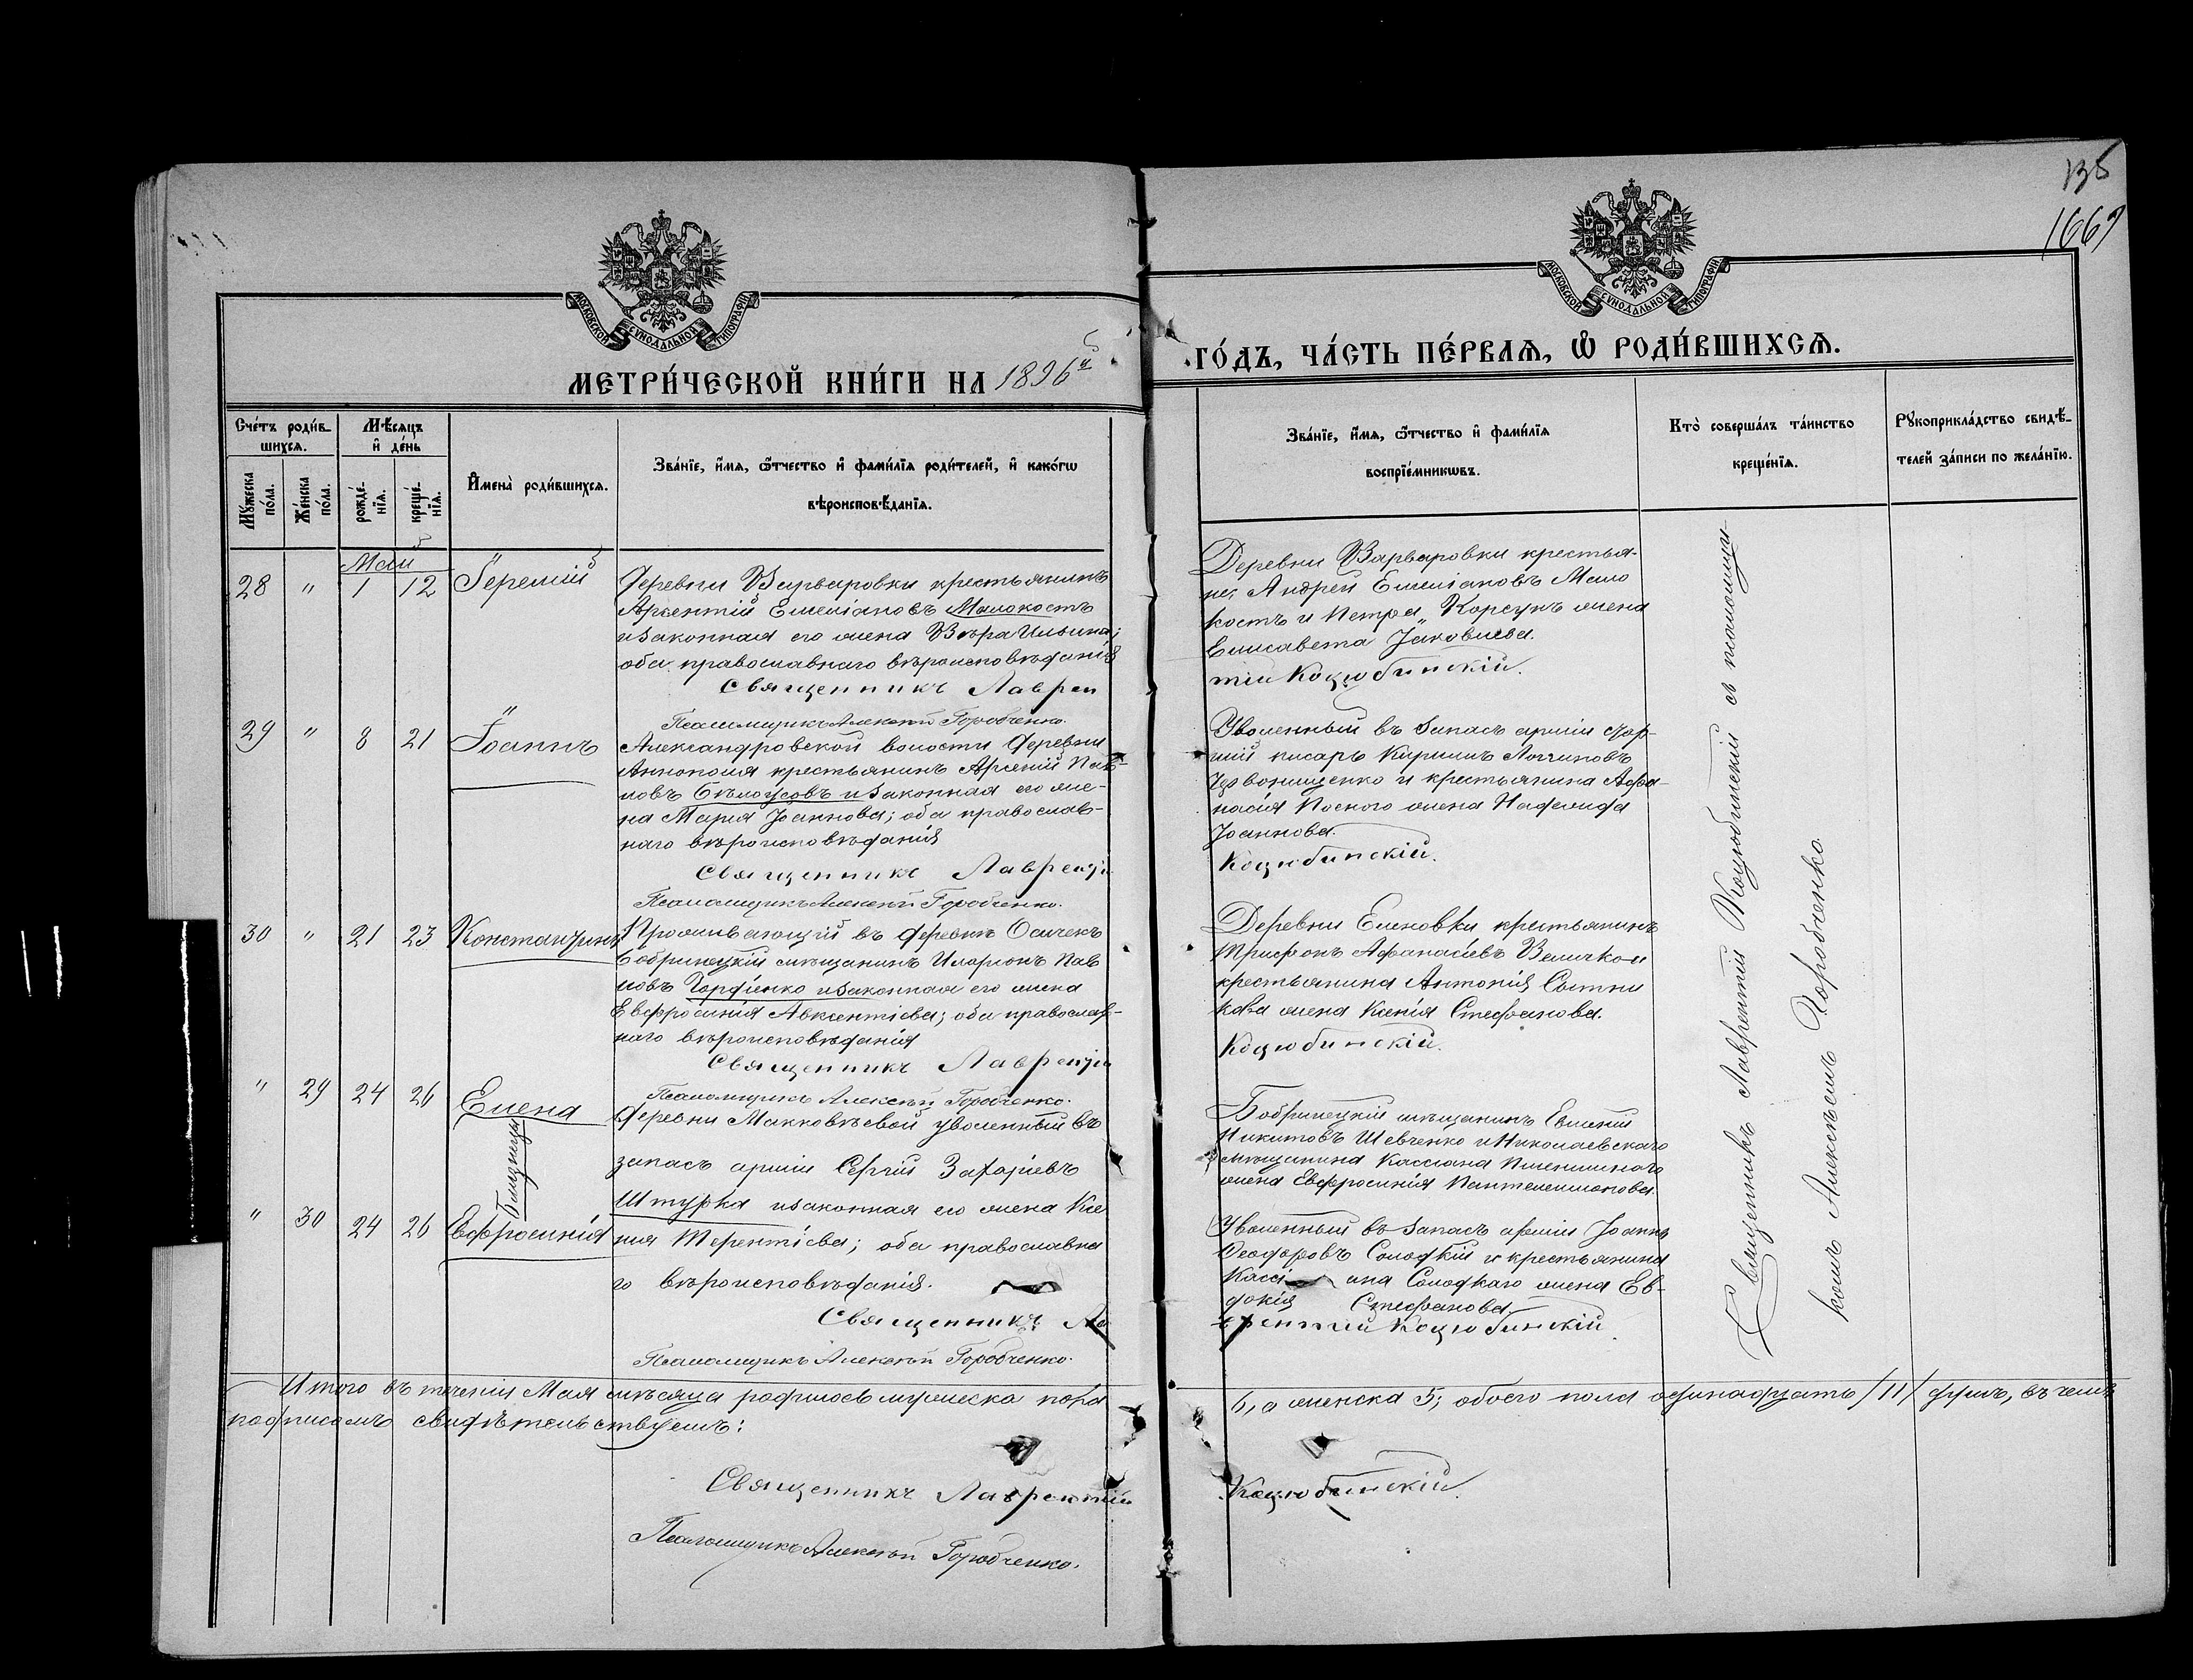 135
1669
МОСКОВСКОЙ СѴНОДАЛЬНОЙ ТИПОГРАФІИ
МОСКОВСКОЙ СѴНОДАЛЬНОЙ ТИПОГРАФІИ
МЕТРИ́ЧЕСКОЙ КНИ́ГИ НА 1896й
ГО́ДЪ, ЧА́СТЬ ПЕ́РВАѦ, Ѡ РОДИ́ВШИХСѦ.
Сче́тъ роди́в-
шихсѧ.
Мꙋ́жеска
по́ла.
Же́нска
по́ла.
Мѣ́сѧцъ
и҆ де́нь
рожде́-
нїѧ.
креще́-
нїѧ.
И҆мена̀ роди́вшихсѧ.
Зва́нїе, и҆́мѧ, ѻ҆́тчество и҆ фами́лїѧ роди́телей, и҆ како́гѡ
вѣроисповѣ́данїѧ.
Зва́нїе, и҆́мѧ, ѻ҆́тчество и҆ фами́лїѧ
воспрїе́мникѡвъ.
Кто̀ соверша́лъ та́инство
креще́нїѧ.
Рꙋкоприкла́дство свидѣ́-
телей за́писи по жела́нїю.
Май
28 " 1 12 Іеремій
Деревни Варваровки крестьянинъ
Авксентій Емеліановъ Малокость
и законная его жена Вѣра Ильина;
оба православнаго вѣроисповѣданія
Священникъ Лаврен
Псаломщикъ Алексѣй Горобченко.
Деревни Варваровки крестья-
не, Андрей Емеліановъ Мало
кость и Петра Корсунъ жена
Елисавета Іаковлева.
тій Коцюбинскій.
29 " 8 21 Іоаннъ
Александровской волости деревни
Аннополя крестьянинъ Арсеній Пав-
ловъ Бѣлоусовъ и законная его же-
на Марія Іоаннова; оба православ-
наго вѣроисповѣданія
Священникъ Лавренті
Псаломщикъ Алексѣй Горобченко.
Уволенный въ запасъ арміи стар-
шій писарь Кириллъ Логгиновъ
Червонищенко и крестьянина Афа-
насія Посного жена Надежда
Іоаннова.
Коцюбинскій.
30 " 21 23 Константинъ
Проживающій въ деревнѣ Осичекъ
бобринецкій мѣщанинъ Иларіонъ Пав
ловъ Гордіенко и законная его жена
Евфросинія Авксентіева; оба православ-
наго вѣроисповѣданія
Священникъ Лаврентій
Псаломщикъ Алексѣй Горобченко.
Деревни Еленовки крестьянинъ
Трифонъ Афанасіевъ Величко и
крестьянина Антонія Сытни
кова жена Ксенія Стефанова.
Коцюбинскій.
" 29 24 26 Елена
близницы
" 30 24 26 Ефросинія
Деревни Маккавѣевой уволенный въ
запасъ арміи Сергій Захаріевъ
Штурка и законная его жена Ксе
нія Терентіева; оба православна
го вѣроисповѣданія.
Священникъ Ла
Псаломщикъ Алексѣй Горобченко.
Бобринецкій мѣщанинъ Евгеній
Никитовъ Шевченко и Николаевскаго
мѣщанина Кассіана Пшеничнаго
жена Евфросинія Пантелеимонова.
Уволенный въ запасъ арміи Іоаннъ
Ѳеодоровъ Солодкій и крестьянина
Кассі ана Солодкаго жена Ев-
докія Стефанова
врентій Коцюбинскій.
Священникъ Лаврентій Коцюбинскій съ псаломщи-
комъ Алексѣемъ Горобченко
Итого въ теченіи Мая мѣсяца родилось мужеска пола 6, а женска 5; обоего пола одинадцать /11/ душъ, въ чемъ
подписомъ свидѣтельствуемъ:
Священникъ Лаврентій Коцюбинскій.
Псаломщикъ Алексѣй Горобченко.